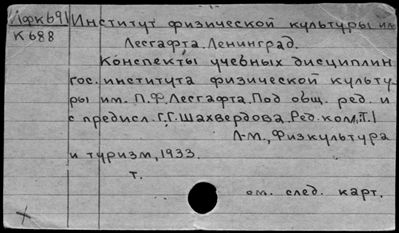 Лфк691 Институт физической культуры им.
К688 Лесгафта. Ленинград.
Конспекты учебных дисциплин
гос. института физической культу-
ры им. П.Ф. Лесгафта. Под общ. ред. и
с предисл. Г.Г. Шахвердова. Ред. ком. Т. 1
Л-М., Физкультура
и туризм, 1933.
т.
см. след. карт.